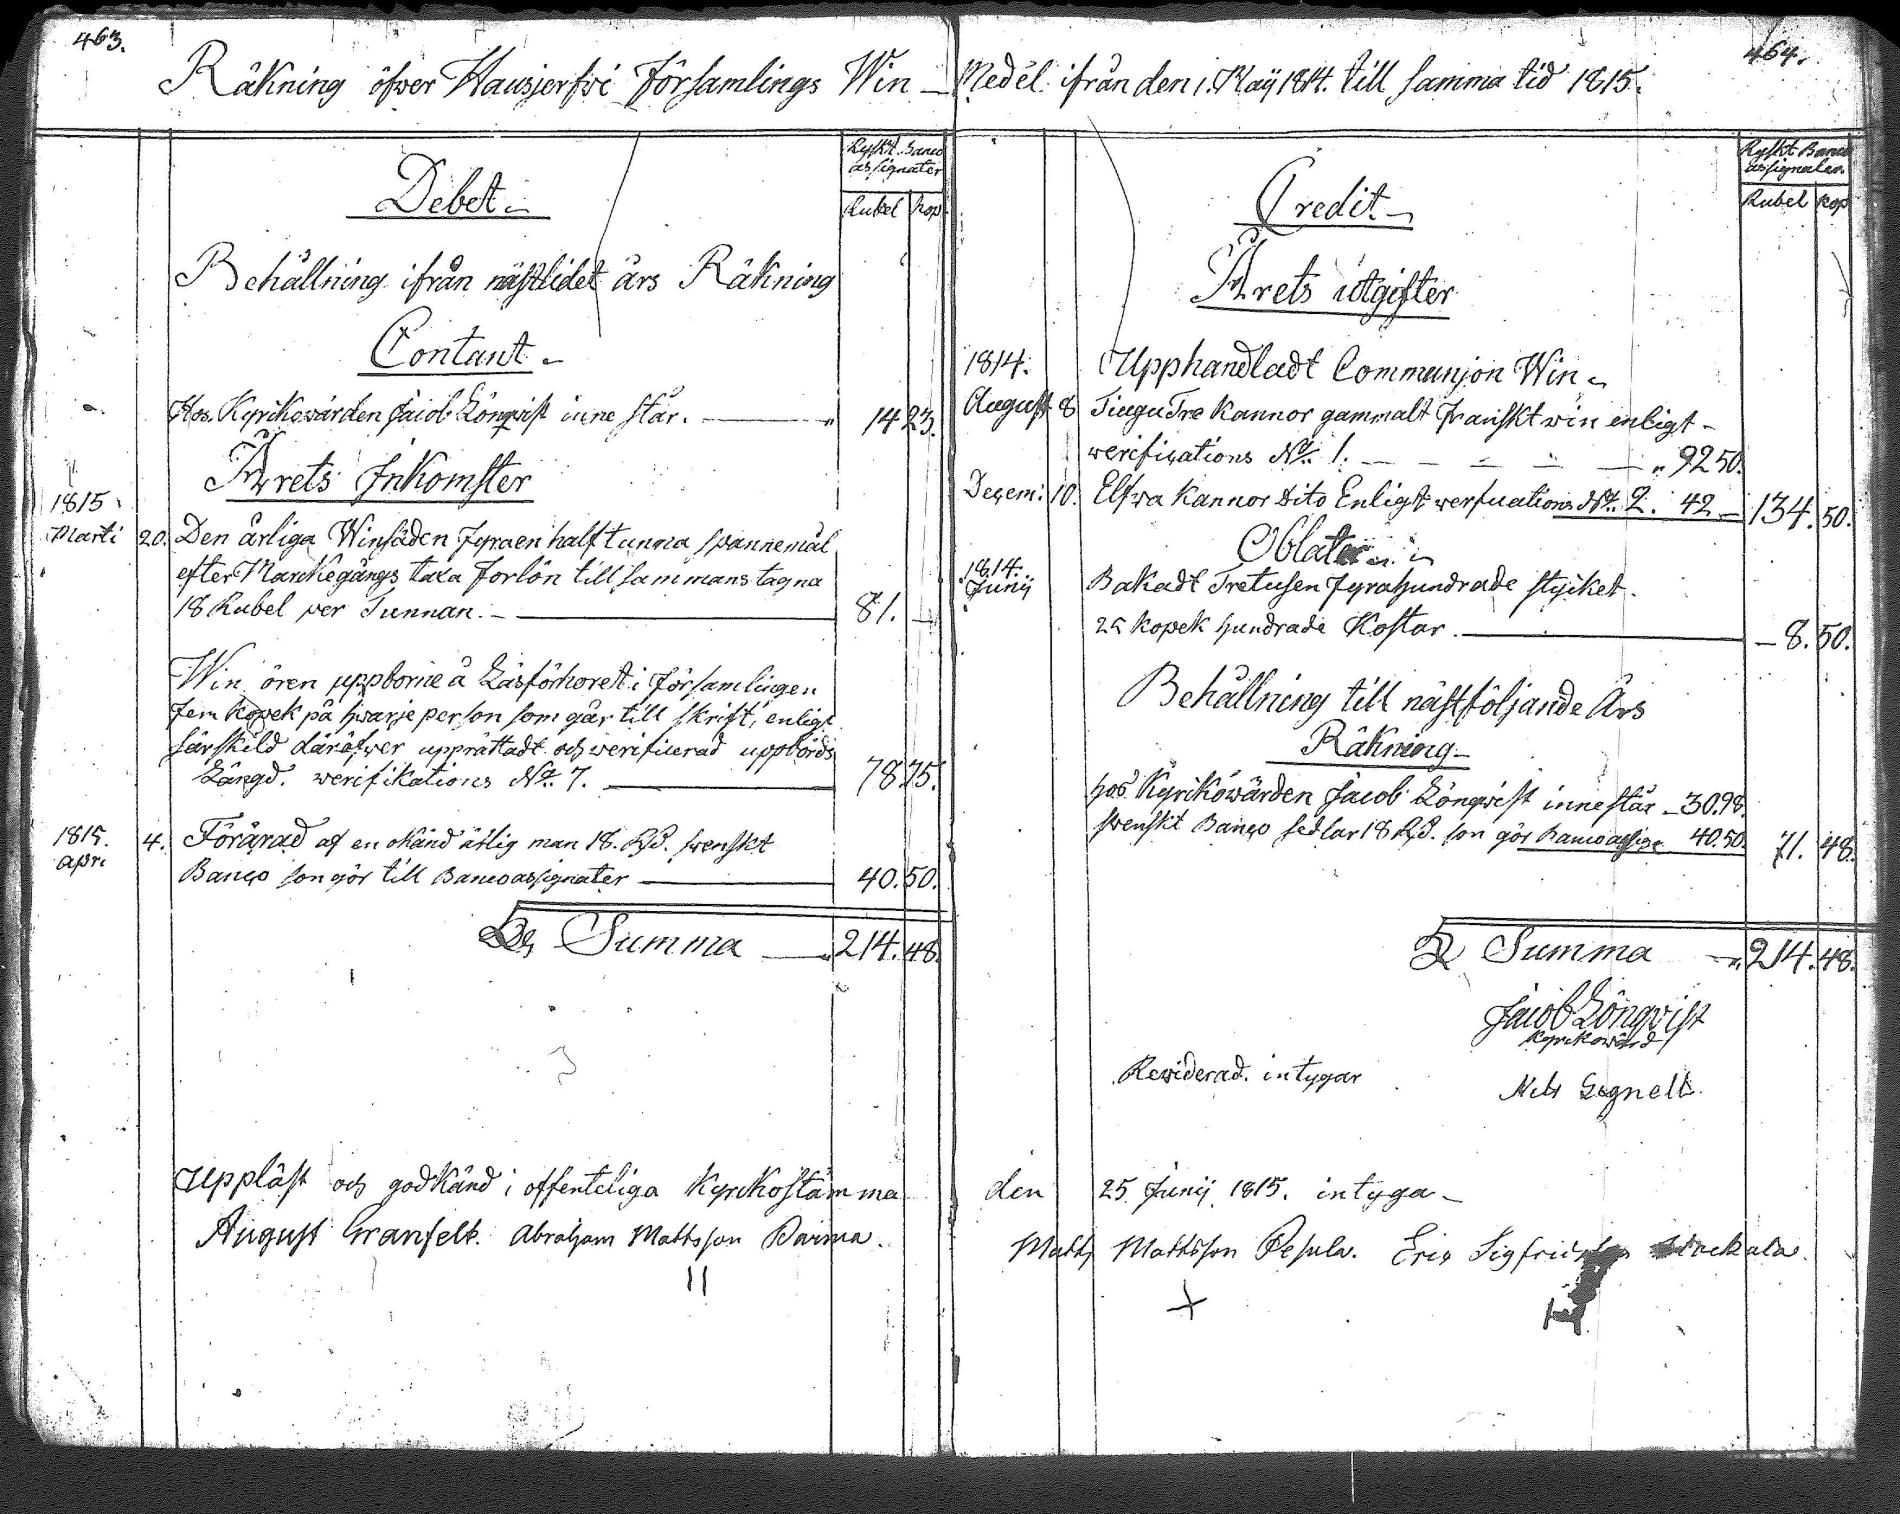 463.
Räkning öfver Hausjerfwi Församlings Win
Ryskt. Banco
assignater
Debet
Rubel Kop
Behållning ifrån nästlidet års Räkning
Contant
Hos Kyrkowärden Jacob Lönqvist inne står. 14 23.
Årets Inkomster
1815
Marti 20. Den årliga Winsäden Fyra en half tunna spannemål
efter Marckegångs taxa Forlön till sammans tagna
18 Rubel per Tunnan. 81. —
Win ören uppborne å Läsförhoret i Församlingen
fem Kopek på hwarje person som går till skrift, enligt
särskild däröfwer upprättadt och werificerad uppbörds
Längd. werifikations No. 7. 78.75.
1815.
Apr. 4. Förärad af en okänd ätlig man 18. R.d. swenskt
Banco son gör till Bancoassignater 40.50.
Summa 214.48.
Uppläst och godkänd i offenteliga Kyrkostämma
August Granfelt. Abraham Mattsson
464.
Medel ifrån den 1. May 1814. till samma tid 1815.
Ryskt Banco
assignater.
Credit
Rubel Kop
Årets utgifter
1814. Upphandladt Communjon Win
August 8 Tiugu Tre Kannor gammalt Franskt win enligt
werifications No. 1. 92 50.
Decem: 10. Elfva Kannor Dito Enligt No. 2. 42 — 134. 50.
Oblater
1814.
Junij Bakadt Tretusen Fyrahundrade stycket.
25 Kopek hundrade Kostar. — 8. 50.
Behållning till nästföljande Års
Räkning
hos Kyrkowärden Jacob Lönqvist inne står 30.98
swenskt Banco sedlar 18 R.d. son gör Bancoassign. 40.50 71. 48.
Summa 214. 48.
Jacob Lönqvist
Kyrkowärd
Rewiderad. intygar Nils
den 25. Junij 1815. intyga
Matts Mattsson Pesula. Eric Sigfridsson